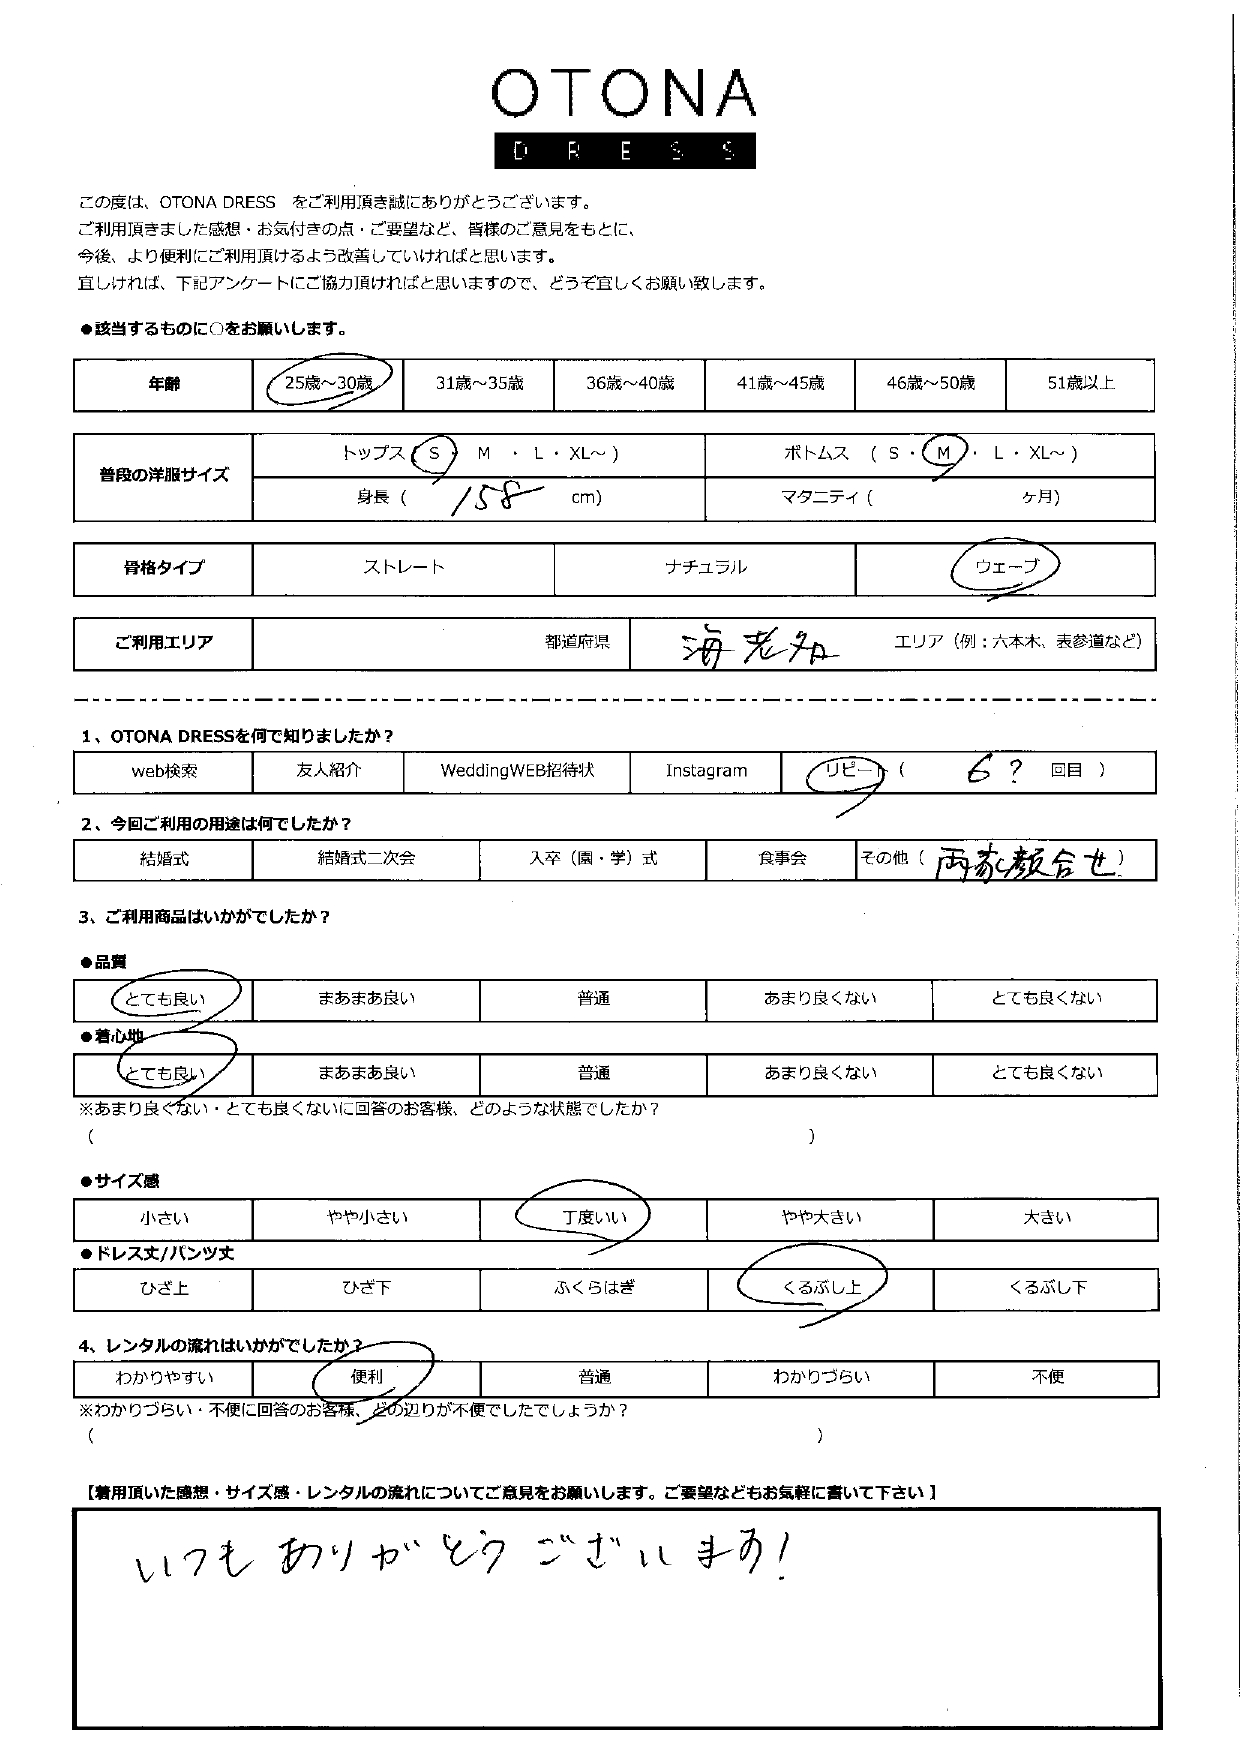 OTONA
DRESS
この度は、OTONA DRESS をご利用頂き誠にありがとうございます。
ご利用頂きました感想・お気付きの点・ご要望など、皆様のご意見をもとに、
今後、より便利にご利用頂けるよう改善していければと思います。
宜しければ、下記アンケートにご協力頂ければと思いますので、どうぞ宜しくお願い致します。
●該当するものに○をお願いします。
年齢 25歳～30歳 31歳～35歳 36歳～40歳 41歳～45歳 46歳～50歳 51歳以上
普段の洋服サイズ トップス( S ・ M ・ L ・ XL～ ) ボトムス ( S ・ M ・ L ・ XL～ )
身長 ( 158 cm) マタニティ ( ケ月)
骨格タイプ ストレート ナチュラル ウェーブ
ご利用エリア 都道府県 海老名 エリア（例：六本木、表参道など）
1、OTONA DRESSを何で知りましたか？
web検索 友人紹介 WeddingWEB招待状 Instagram リピート ( 6？ 回目 )
2、今回ご利用の用途は何でしたか？
結婚式 結婚式二次会 入卒（園・学）式 食事会 その他（両家顔合せ）
3、ご利用商品はいかがでしたか？
●品質
とても良い まあまあ良い 普通 あまり良くない とても良くない
●着心地
とても良い まあまあ良い 普通 あまり良くない とても良くない
※あまり良くない・とても良くないに回答のお客様、どのような状態でしたか？
( )
●サイズ感
小さい やや小さい 丁度いい やや大きい 大きい
●ドレス丈/パンツ丈
ひざ上 ひざ下 ふくらはぎ くるぶし上 くるぶし下
4、レンタルの流れはいかがでしたか？
わかりやすい 便利 普通 わかりづらい 不便
※わかりづらい・不便に回答のお客様、どの辺りが不便でしたでしょうか？
( )
【着用頂いた感想・サイズ感・レンタルの流れについてご意見をお願いします。ご要望などもお気軽に書いて下さい】
いつもありがとうございます！